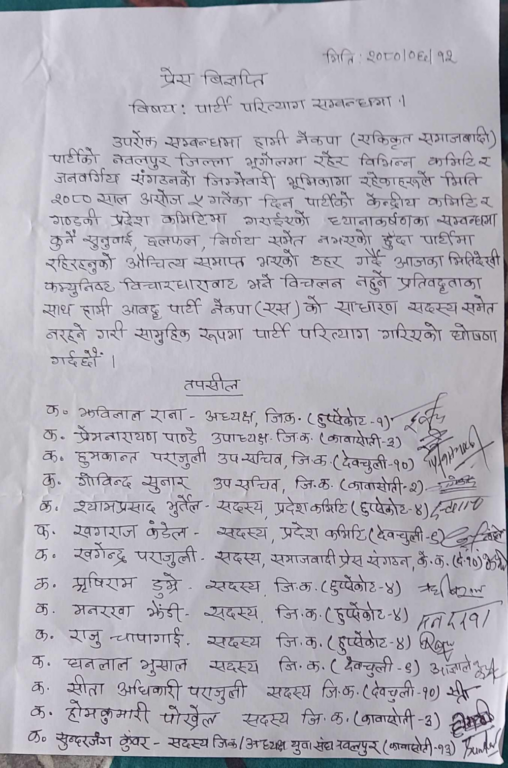 मिति: २०८०/०६/१२
प्रेस विज्ञप्ति
विषय: पार्टी परित्याग सम्बन्धमा ।
उपरोक्त सम्बन्धमा हामी नेकपा (एकिकृत समाजवादी)
पार्टीको नवलपुर जिल्ला भूगोलमा रहेर विभिन्न कमिटि र
जनवर्गिय संगठनको जिम्मेवारी भूमिकामा रहेकाहरूले मिति
२०८० साल असोज ५ गतेका दिन पार्टीको केन्द्रीय कमिटि र
गण्डकी प्रदेश कमिटिमा गराईएको ध्यानाकर्षणका सम्बन्धमा
कुनै सुनुवाई, छलफल, निर्णय समेत नभएको हुँदा पार्टीमा
रहिरहनुको औचित्य समाप्त भएको ठहर गर्दै आजका मितिदेखी
कम्युनिष्ट विचारधाराबाट भने विचलन नहुने प्रतिवद्वताका
साथ हामी आवद्व पार्टी नेकपा (एस) को साधारण सदस्य समेत
नरहने गरी सामुहिक रूपमा पार्टी परित्याग गरिएको घोषणा
गर्दछौं ।
तपसील
क. झविलाल राना - अध्यक्ष, जि.क. (हुप्सेकोट-१)
क. प्रेमनारायण पाण्डे उपाध्यक्ष जि.क. (कावासोती-२)
क. हुमकान्त पराजुली उप सचिव, जि.क. (देवचुली-१०)
क. गोविन्द सुनार उप सचिव, जि.क. (कावासोती-२)
क. श्यामप्रसाद भुर्तेल - सदस्य, प्रदेश कमिटि (हुप्सेकोट-४)
क. खगराज कंडेल - सदस्य, प्रदेश कमिटि (देवचुली-६)
क. खगेन्द्र पराजुली - सदस्य, समाजवादी प्रेस संगठन, के.क. (दे.१०)
क. ऋषिराम डुम्रे - सदस्य जि.क. (हुप्सेकोट-४)
क. मनरखा झेंडी - सदस्य जि.क. (हुप्सेकोट-४)
क. राजु चापागाई. सदस्य जि.क. (हुप्सेकोट-४)
क. घनलाल भुसाल सदस्य जि.क. (देवचुली-६)
क. सीता अधिकारी पराजुली सदस्य जि.क. (देवचुली-१०)
क. होमकुमारी पोख्रेल सदस्य जि.क. (कावासोती-३)
क. सुन्दरजंग कुंवर - सदस्य जिक/अध्यक्ष युवा संघ नवलपुर (कावासोती-१३)